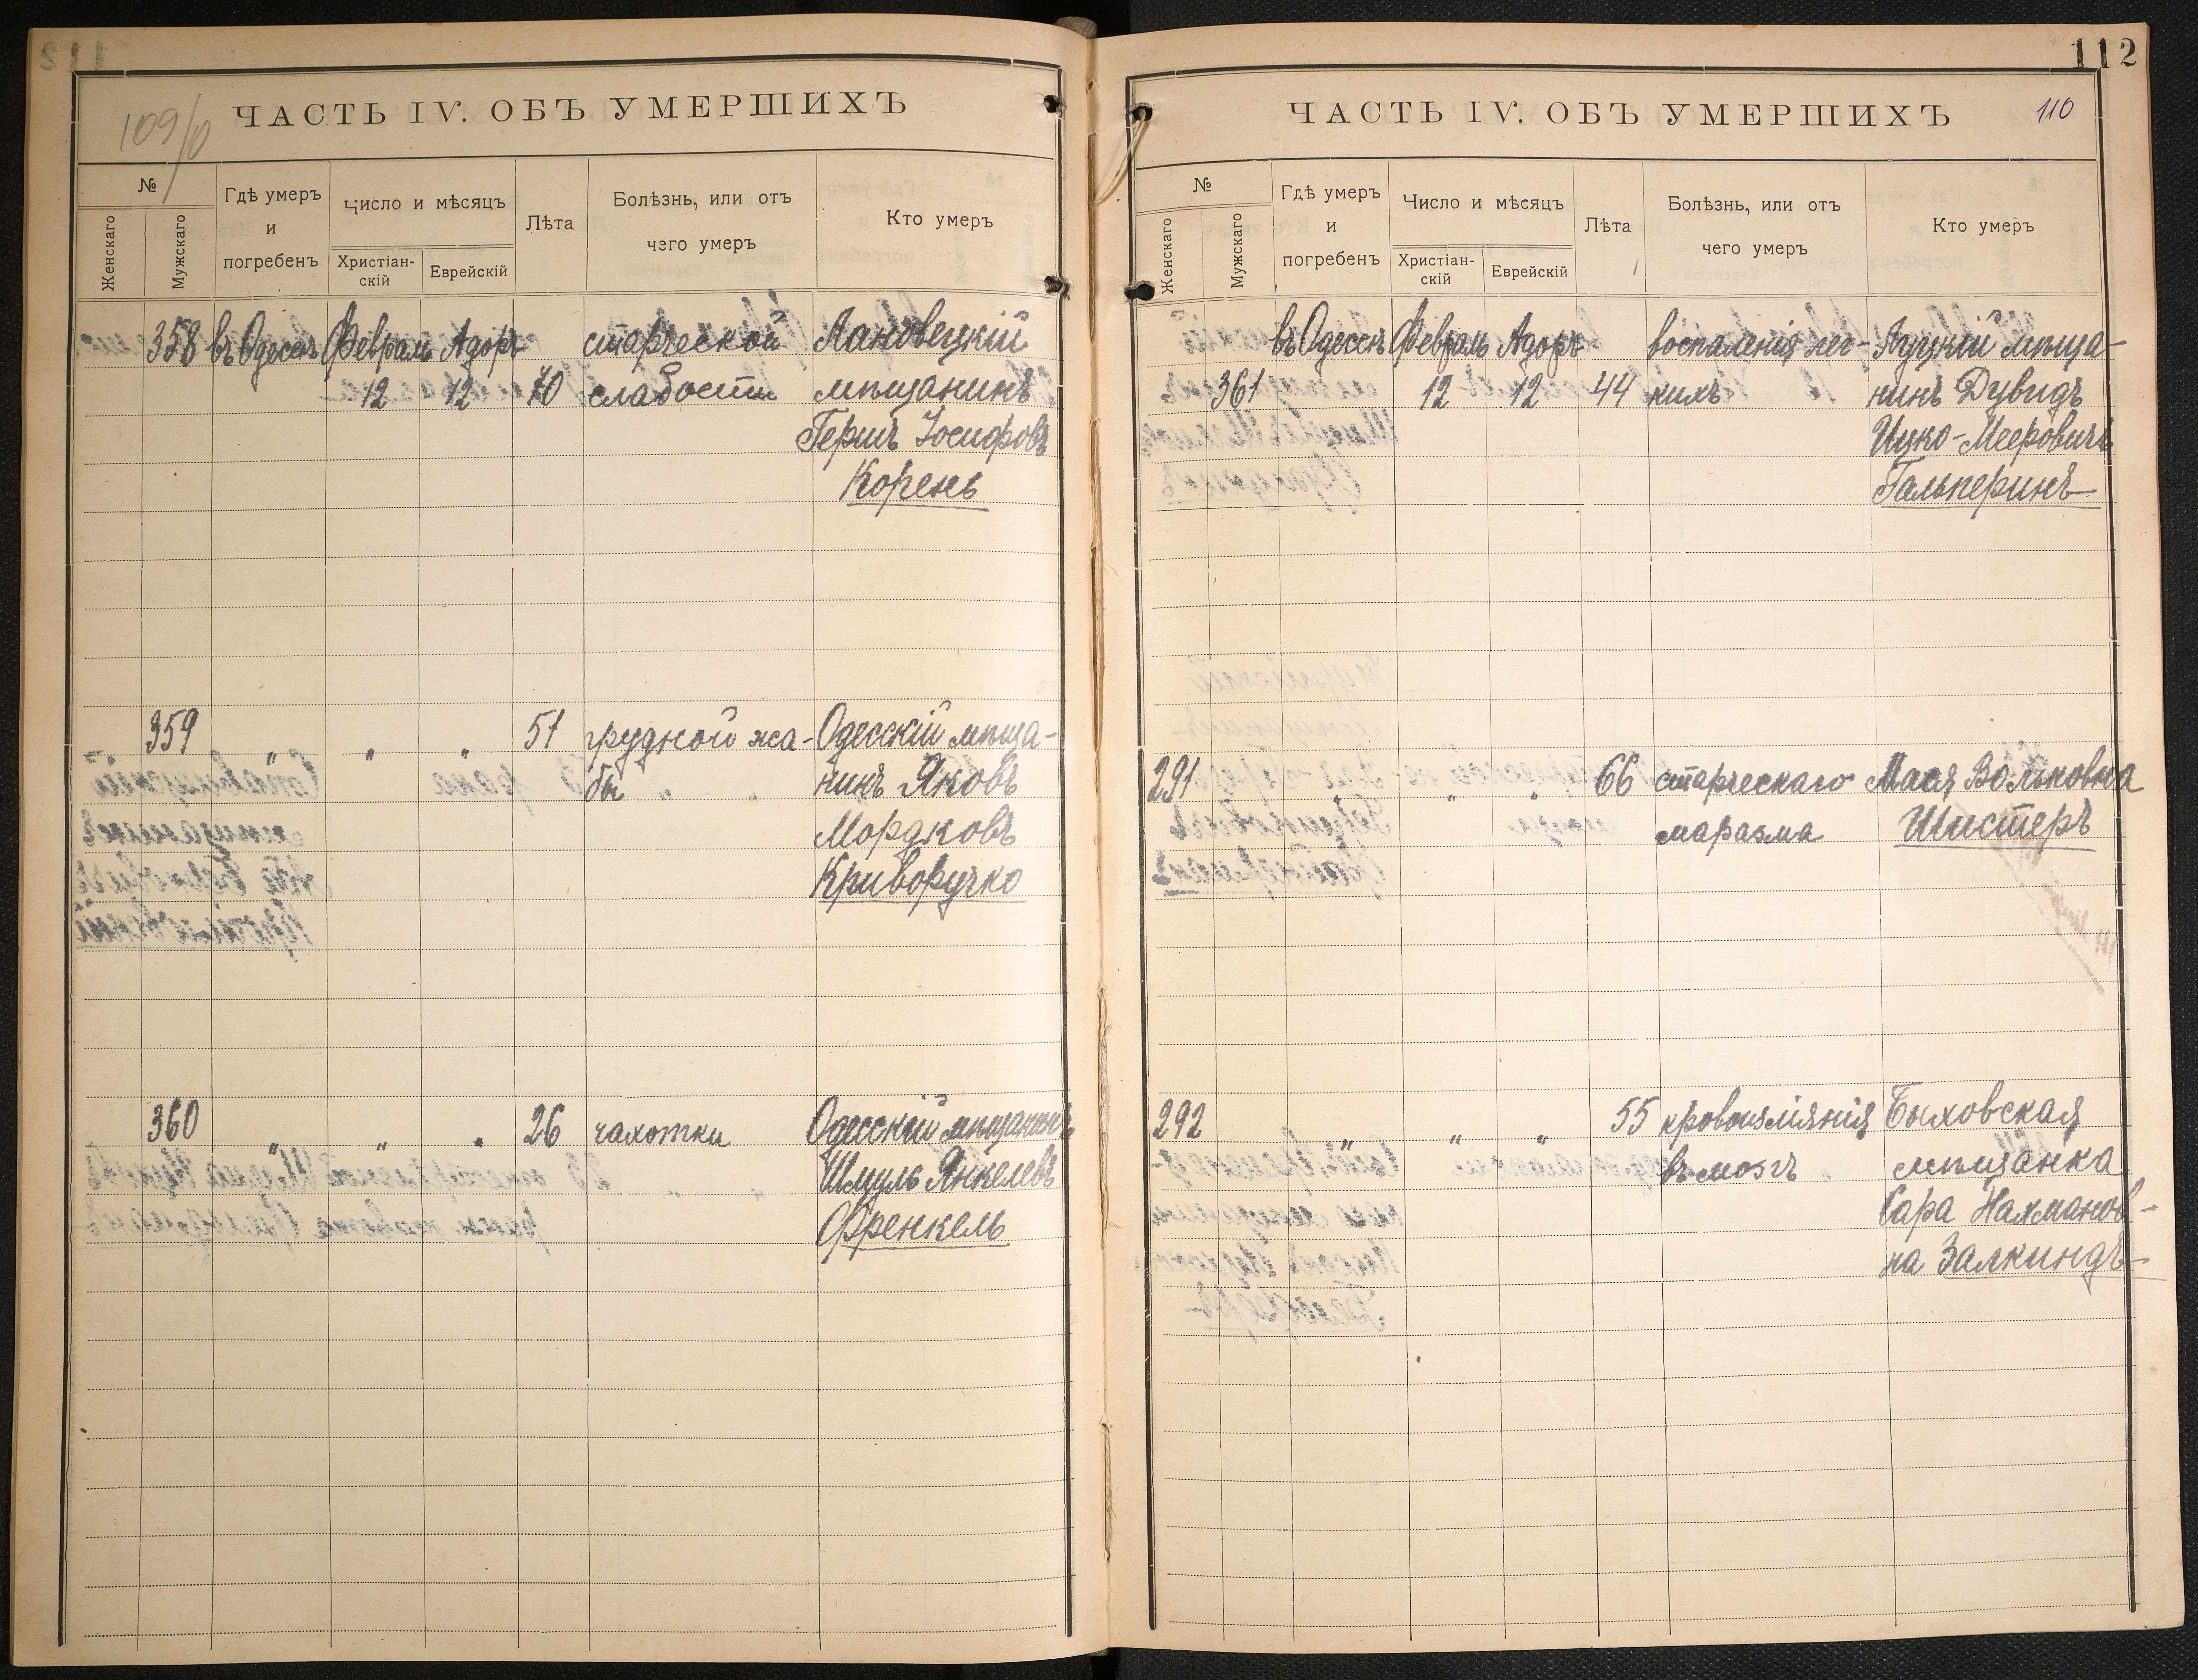 109/0
ЧАСТЬ IV. ОБЪ УМЕРШИХЪ
№
Женскаго
Мужскаго
Гдѣ умеръ
и
погребенъ
Число и мѣсяцъ
Христіан-
скій
Еврейскій
Лѣта
Болѣзнь, или отъ
чего умеръ
Кто умеръ
358 въ Одессѣ Февраль Адоръ старческой Лановецкій
12 12 70 слабости мѣщанинъ
Гершъ Іосифовъ
Корень
359 " " " 51 грудной жа- Одесскій мѣща-
бы нинъ Яковъ
Мордковъ
Криворучко
360 " " " 26 чахотки Одесскій мѣщанинъ
Шмуль Янкелевъ
Френкель
112
ЧАСТЬ IV. ОБЪ УМЕРШИХЪ
110
№
Женскаго
Мужскаго
Гдѣ умеръ
и
погребенъ
Число и мѣсяцъ
Христіан-
скій
Еврейскій
Лѣта
Болѣзнь, или отъ
чего умеръ
Кто умеръ
въ Одессѣ Февраль Адоръ воспаленія лег- Луцкій мѣща-
361 12 12 44 кихъ нинъ Дувидъ
Ицко-Мееровичъ
Гальперинъ
291 " " " 66 старческаго Мася Вольковна
маразма Шистеръ
292 " " " 55 кровоизліянія Быховская
въ мозгъ мѣщанка
Сара Нахманов-
на Залкиндъ